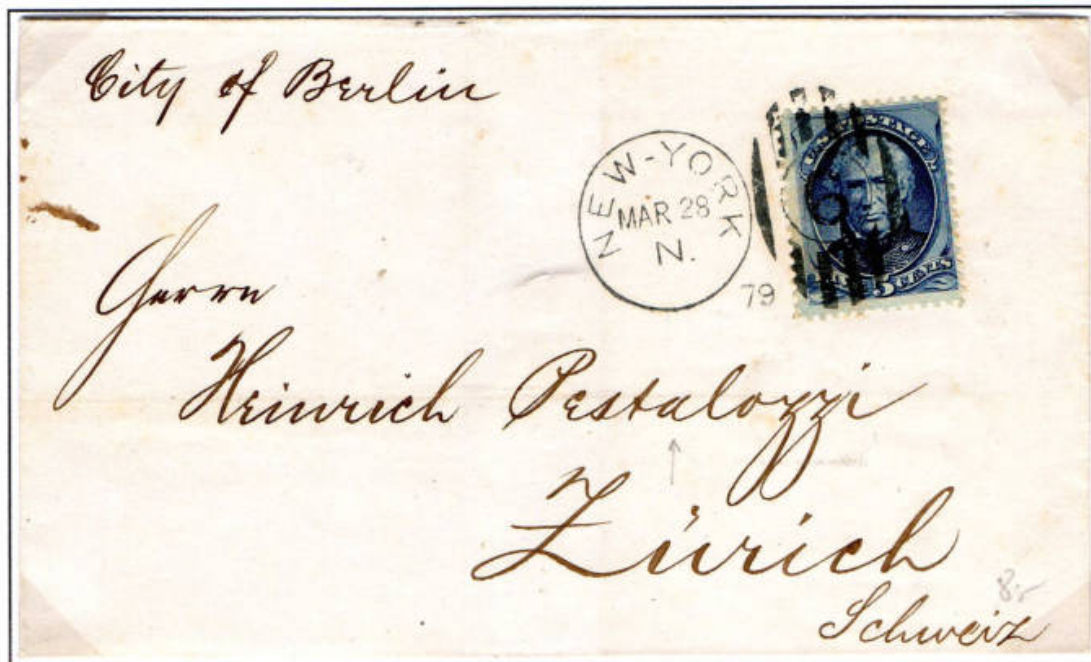 City of Berlin
NEW-YORK
MAR 28
N.
79
U.S. POSTAGE
5 CENTS
Herrn
Heinrich Pestalozzi
Zürich
Schweiz